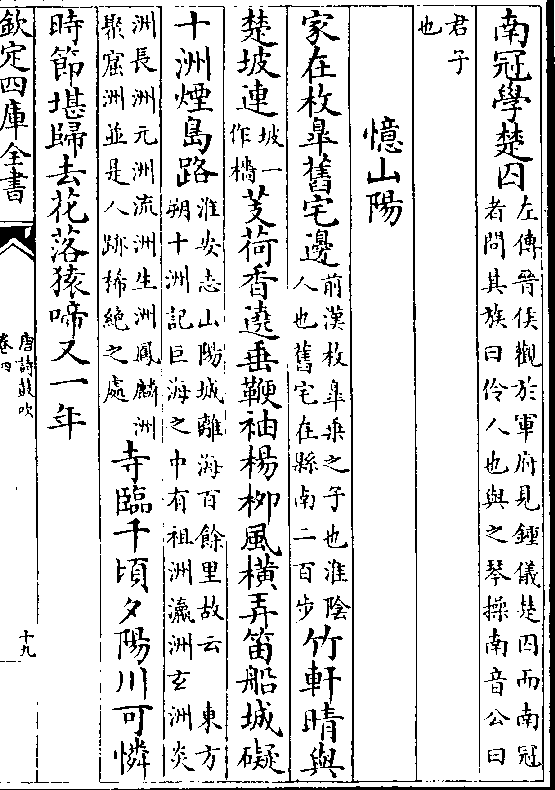 南冠學楚囚左傳晉侯觀於軍府見鍾儀楚囚而南冠
者問其族曰伶人也與之琴操南音公曰
君子
也
憶山陽
家在枚臯舊宅邊前漢枚臯乗之子也淮隂
人也舊宅在縣南二百步竹軒晴與
楚坡連坡一
作檣芰荷香遶垂鞭袖楊柳風横弄笛船城礙
十洲煙島路淮安志山陽城離海百餘里故云 東方
朔十洲記巨海之中有祖洲瀛洲玄洲炎
洲長洲元洲流洲生洲鳳麟洲
聚窟洲並是人跡稀絶之處寺臨千頃夕陽川可憐
時節堪歸去花落猿啼又一年
欽定四庫全書
唐詩鼓吹
卷四
十九